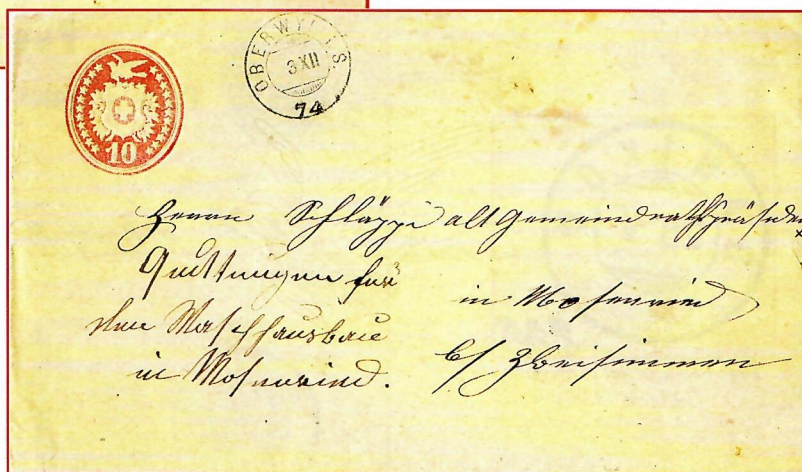 OBERWYL I. S.
3 XII
74
10
Herrn Schläppi alt Gemeindrathspräsiden
Quittungen für
den Waschhausbau
in Mosenried.
in Mosenried
b/ Zweisimmen